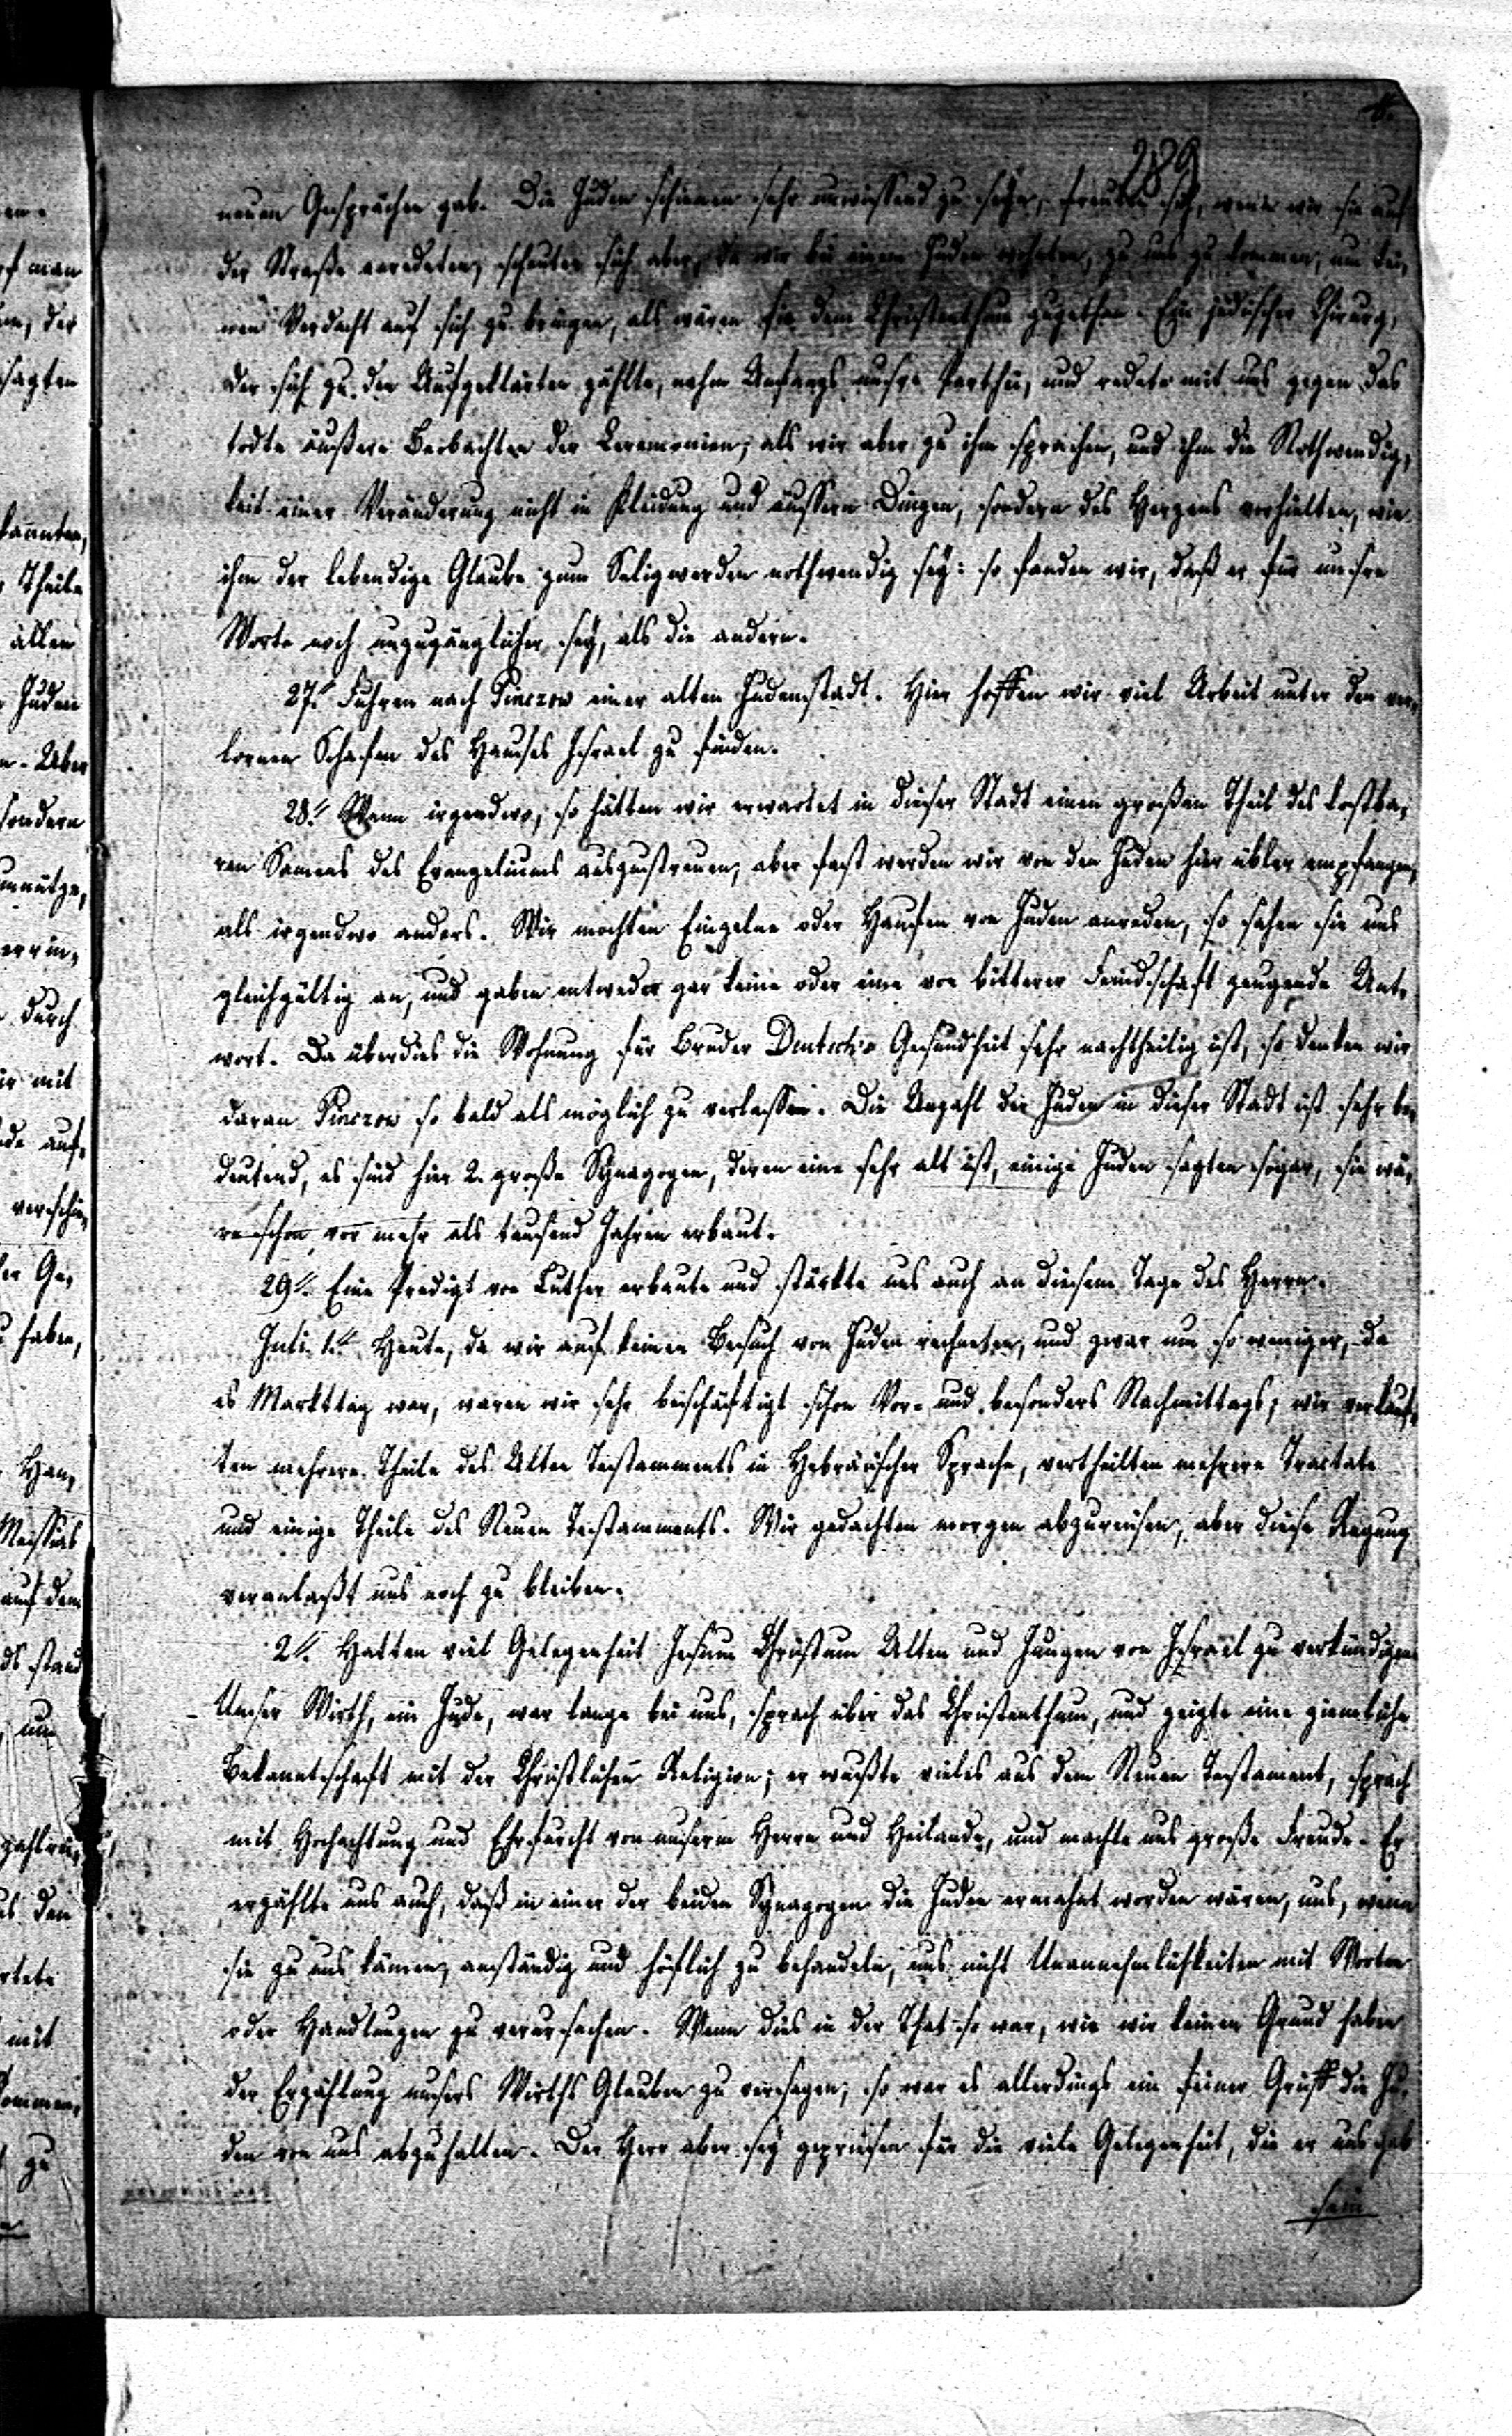 289
neuen Gesprächen gab. Die Juden schienen sehr unwissend zu seyn, freuten sich, wenn wir sie auf
der Straße anredeten, scheuten sich aber, da wir bei einem Juden wohnten, zu uns zu kommen, um kei-
nen Verdacht auf sich zu bringen, als wären sie dem Christenthum zugethan. Ein jüdischer Chirurg,
der sich zu den Aufgeklärten zählte, nahm Anfangs unsre Parthei, und redete mit uns gegen das
todte äußere Beobachten der Ceremonien; als wir aber zu ihm sprachen, und ihm die Nothwendig-
keit einer Veränderung nicht in Kleidung und äussern Dingen, sondern des Herzens vorhielten, wie
ihm der lebendige Glaube zum Seligwerden nothwendig sey: so fanden wir, daß er für unsre
Worte noch unzugänglicher sey, als die andern.
27t. Fuhren nach Pinczow einer alten Judenstadt. Hier hoffen wir viel Arbeit unter den ver-
lornen Schafen des Hauses Israel zu finden.
28t. Wenn irgendwo, so hätten wir erwartet in dieser Stadt einen großen Theil des kostba-
ren Samens des Evangeliums auszustreuen, aber fast werden wir von den Juden hier übler empfangen,
als irgendwo anders. Wir mochten Einzelne oder Haufen von Juden anreden, so sahen sie uns
gleichgültig an, und gaben entweder gar keine oder eine von bitterer Feindschaft zeugende Ant-
wort. Da überdies die Wohnung für Bruder Gesundheit sehr nachtheilig ist, so denken wir
daran Pinczow so bald als möglich zu verlassen. Die Anzahl der Juden in dieser Stadt ist sehr be-
deutend, es sind hier 2. große Synagogen, deren eine sehr alt ist, einige Juden sagten sogar, sie wä-
re schon vor mehr als tausend Jahren erbaut.
29t. Eine Predigt von Luther erbaute und stärkte uns auch an diesem Tage des Herrn.
Juli. 1.t Heute, da wir auf keinen Besuch von Juden rechneten, und zwar um so weniger, da
es Markttag war, waren wir sehr beschäftigt schon Vor- und besonders Nachmittags; wir verkauf-
ten mehrere Theile des Alten Testamments in Hebräischer Sprache, vertheilten mehrere Tractate
und einige Theile des Neuen Testamments. Wir gedachten morgen abzureisen, aber diese Regung
veranlaßt uns noch zu bleiben.
2t. Hatten viel Gelegenheit Jesum Christum Alten und Jungen von Israel zu verkündigen.
Unser Wirth, ein Jude, war lange bei uns, sprach über das Christenthum, und zeigte eine ziemliche
Bekanntschaft mit der Christlichen Religion; er wußte vieles aus dem Neuen Testament, sprach
mit Hochachtung und Ehrfurcht von unserm Herrn und Heilande, und machte uns große Freude. Er
erzählte uns auch, daß in einer der beiden Synagogen die Juden ermahnt worden wären, uns, wenn
sie zu uns kämen, anständig und höflich zu behandeln, uns nicht Unannehmlichkeiten mit Worten
oder Handlungen zu verursachen. Wenn dies in der That so war, wie wir keinen Grund haben
der Erzählung unsers Wirths Glauben zu versagen, so war es allerdings ein feiner Griff die Ju-
den von uns abzuhalten. Der Herr aber sey gepriesen für die viele Gelegenheit, die er uns gab